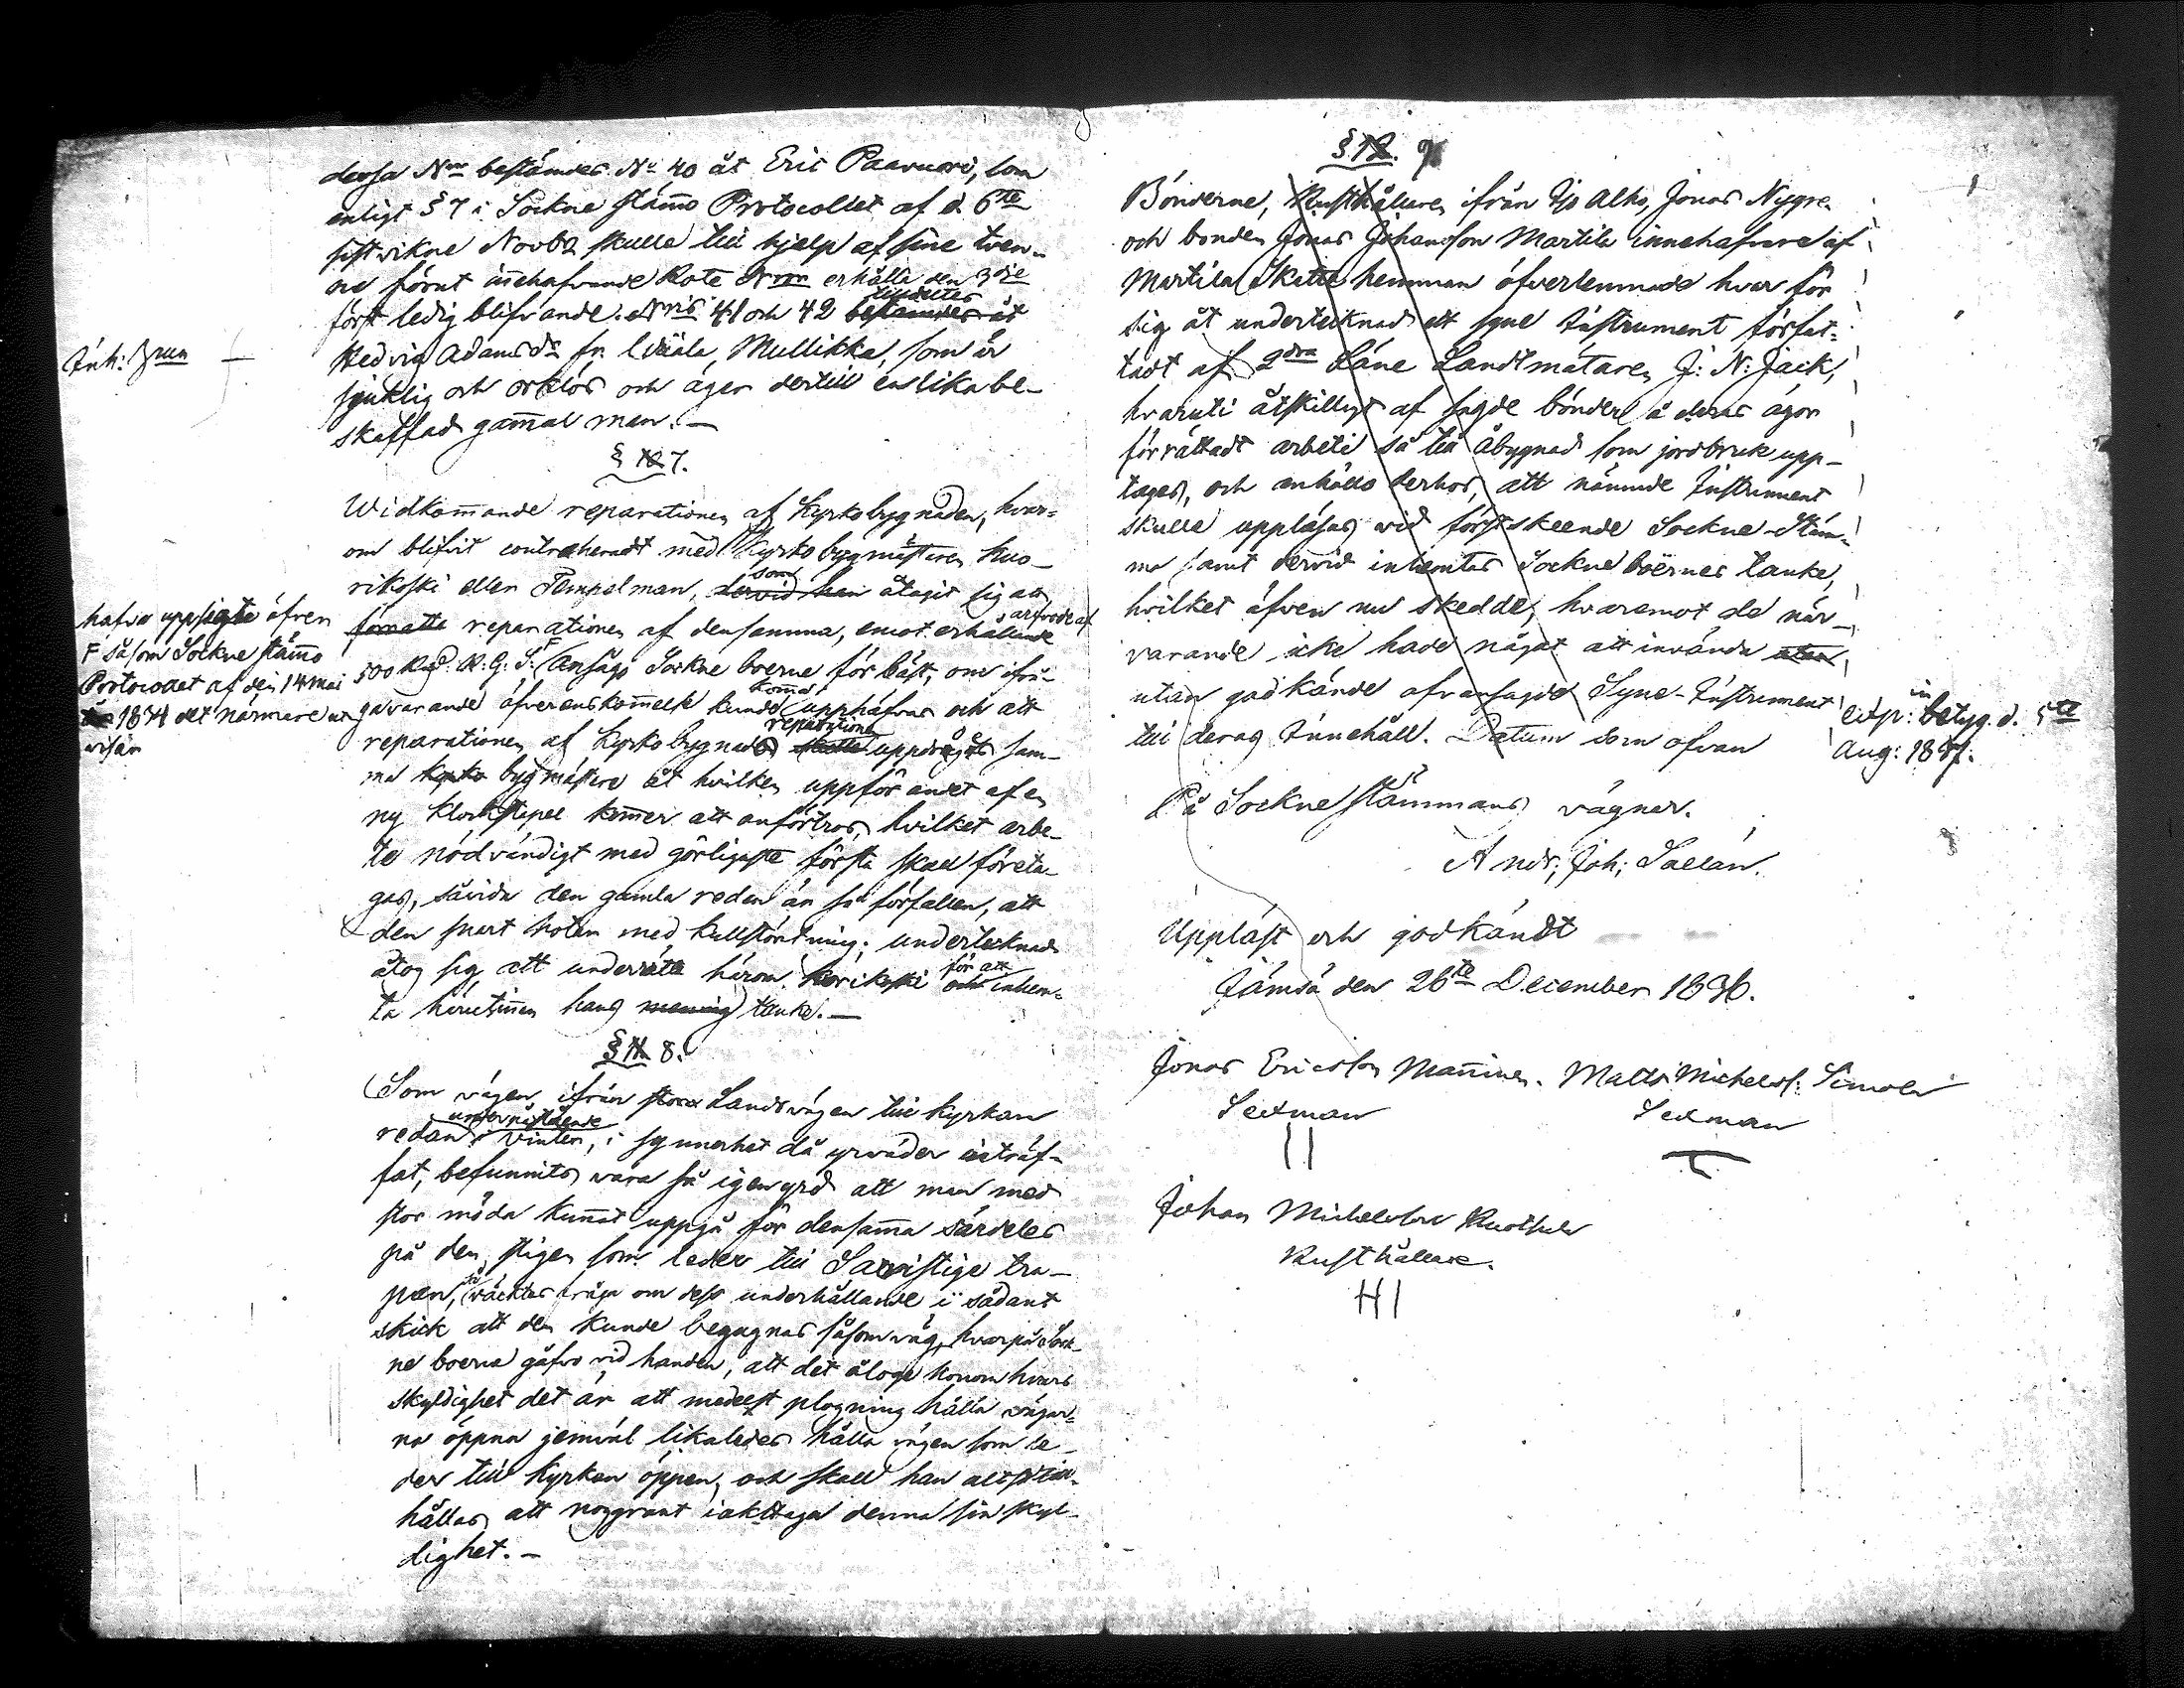 dessa N:rr bestämdes N:o 40 åt Eric Paavuori, som
enligt § 7 i Sockne stämo Protocollet af d. 6te
sistvikne Novbr skulle till hjelp af sine tven-
ne förut inehafvande Rote N:rr erhålla den 3dje
först ledig blifvande. N:ris 41 och 42 tilldeltes bestämdes åt
Hedvig Adamsdr fr. Wääla, Mullikka, som är
Ink: Brun
sjuklig och orklös och äger dertill en lika be-
skaffad gamal man. —
§ 10 7.
Widkomande reparationen af Kyrkobygnaden, hvar-
om blifvit contraheradt med Kyrkobygmästaren Kuo-
rikoski eller Tempelman, som dervid han åtagit sig att
förrätta reparationen af densamma, emot erhållande arfvode af
hafva uppsigte äfven
F såsom Sockne stämo
Protocollet af den 14 Maj
1834 det närmare ut-
visar
500 Rub. R: G: S: F Ansågo Sockne boerne för bäst, om ifrå-
gavarande öfverenskomelse kunde komma upphäfvas och att
reparationen af Kyrkobygnaden reparationen skulle uppdragas sam-
ma kyrko bygmästare åt hvilken uppförandet af en
ny Klockstapel komer att anförtros, hvilket arbe-
te nödvändigt med görligaste första skall företa-
gas, såvida den gamla redan är så förfallen, att
den snart hotar med kullstörtning; undertecknad
åtog sig att underrätta härom Korikoski för att och inhem-
ta härutinnan hans mening tanke. —
§ 11 8.
Som vägen ifrån stora Landsvägen till Kyrkan
redan undervistående vinter, i synnerhet då yrväder inträf-
fat, befunnits vara så igenyrd att man med
stor möda kunnat uppgå för densama särdeles
på den stigen som leder till Sacristige tra-
pan, så väcktes fråga om dess underhållande i sådant
skick att den kunde begagnas såsom väg, hvarpå Sock-
ne boerna gåfvo vid handen, att det åloge honom hvars
skyldighet det är att medelst plogning hålla vägar-
na öppna jemväl likaledes hålla vägen som le-
der till Kyrkan öppen, och skall han alt
hållas att noggrant iakttaga denna sin skyl-
dighet. —
§ 12. 9
Bönderne, Rusthållaren ifrån Ijo Alho, Jonas Nygre.
och bonden Jonas Johansson Martila innehafvare af
Martila Skatte hemman öfverlemnade hvar för
sig åt undertecknad ett syne Instrument förfat-
tadt af 2dra Läne Landtmätaren J: N: Jack,
hvaruti åtskilligt af sagde bönder å deras ägor
förrättadt arbete så till åbygnad som jordbruk upp-
tages, och anhållo derhos, att nämnde Instrument
skulle uppläsas vid först skeende Sockne-Stäm-
ma samt dervid inhemtas Sockne boernes tanke,
hvilket äfven nu skedde, hvaremot de när-
varande icke hade något att invända utan
utan godkände ofvansagde Syne-Instrument
till deras Innehåll. Datum som ofvan
Exp: in betyg. d. 5te
Aug: 1837.
På Sockne stämmans vägnar.
Andr; Joh; Sallán.
Uppläst och godkändt
Jämsä den 26te December 1836.
Jonas Ericsson Maninen. Matts Michelss: Simola
Sexman Sexman
Johan Michelsson Ruothula
Rusthållare.